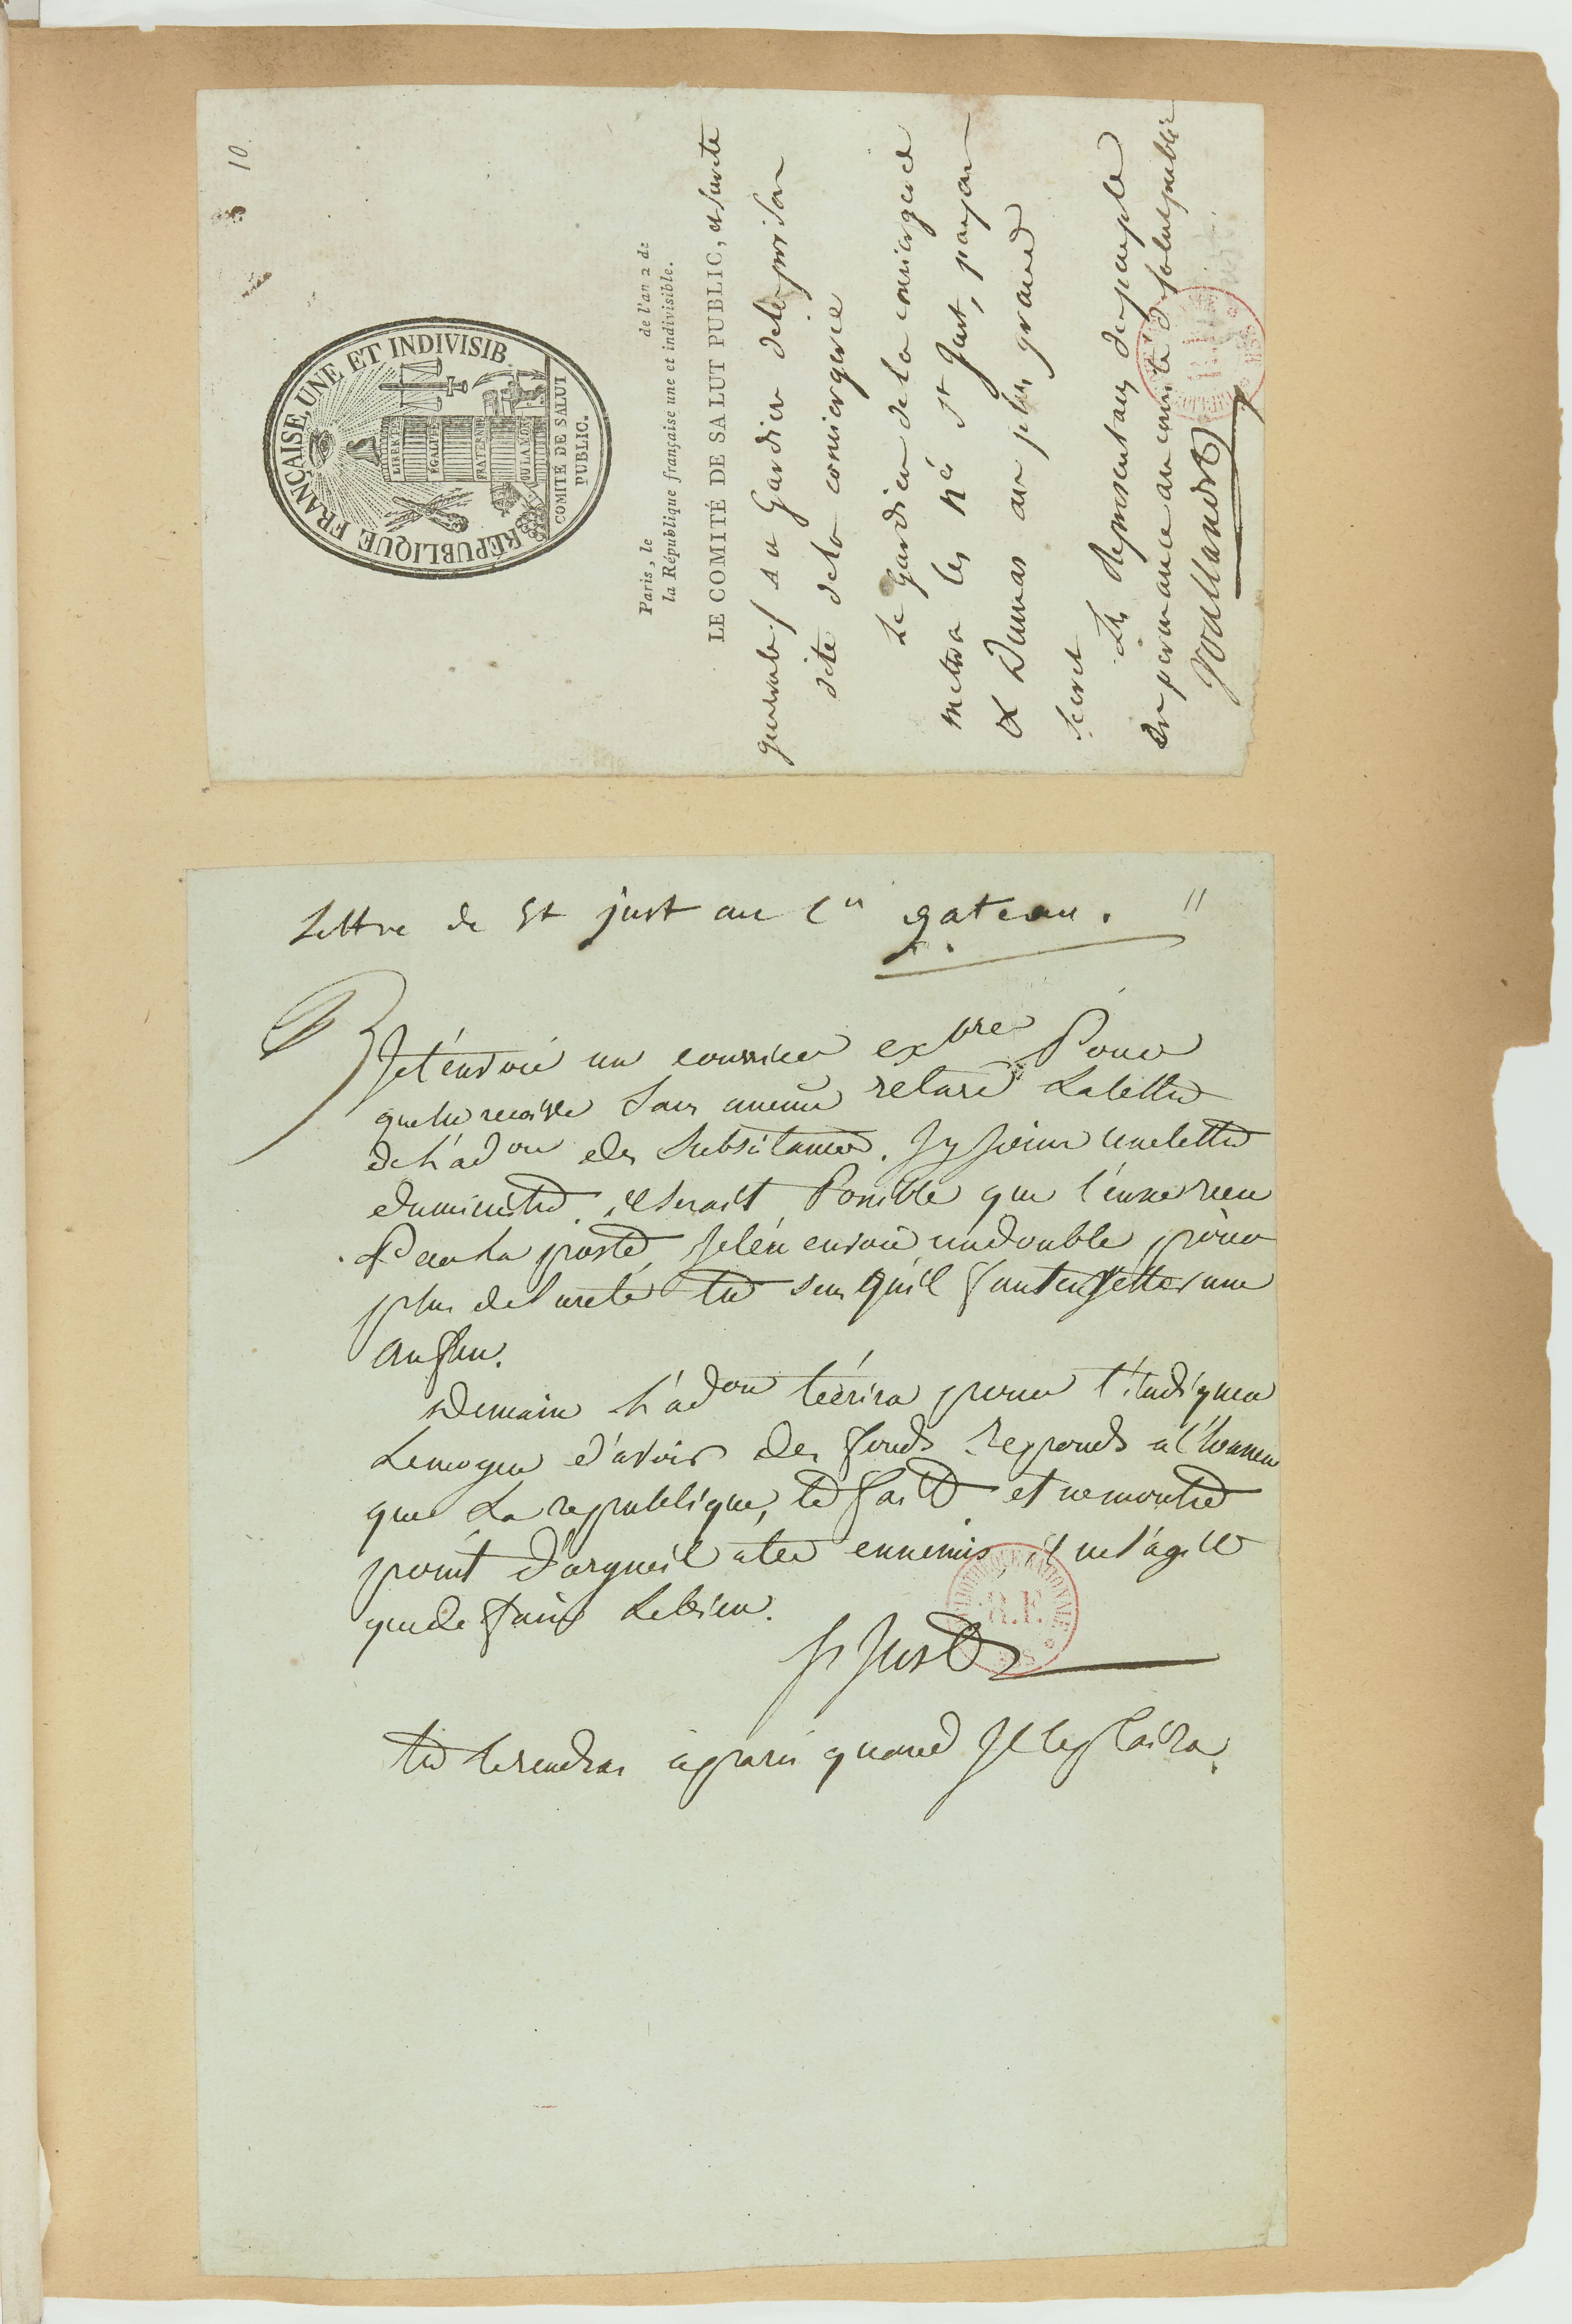 10
RÉPUBLIQUE FRANÇAISE, UNE ET INDIVISIB.
LIBERTÉ
ÉGALITÉ
FRATERNITÉ
OU LA MORT
COMITÉ DE SALUT
PUBLIC.
Paris, le de l'an 2 de
la République française une et indivisible.
LE COMITÉ DE SALUT PUBLIC, et surete
generale / au Gardien de la prison
dite de la conciergerie
Le Gardien de la conciergerie
mettra les nés St Just, payan
et Dumas au plus grand
secret
Les representans du peuple
en permanence au comité de salut public
Voulland
11
Lettre de St just au Cn gateau.
Je t'envoie un courrier exbre Pour
que tu recoive sans aucun retard La lettre
de L'adon des subsitance. Jy joins une lettre
du ministre. il serait Possible que l'eusse recu
Par La poste, Je t'en envoie un double pour
plus de sureté tu sens qu'il faut en jetter une
au feu.
Demain L'adon t'écrira pour t'indiquer
Le moyen d'avoir des fonds. Reponds a l'honneur
que La republique, te fait et ne montre
point d'orgueil a tes ennemis il ne s'agit
que de faire Le bien.
St Just
tu te rendras a paris quand Il te plaira.
BIBLIOTHEQUE NATIONALE
R.F.
MSS